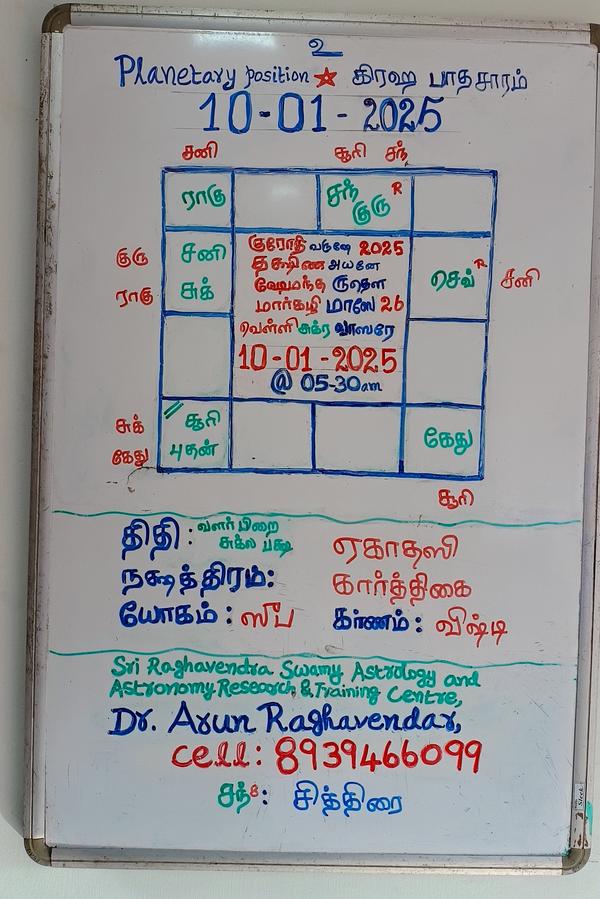 உ
Planetary position கிரஹ பாதசாரம்
10-01-2025
சனி சூரி சந்
ராகு சந் குரு R
குரு
ராகு
சனி
சுக்
குரோதி வருஷே 2025
தக்ஷிண அயனே
ஹேமந்த ருதௌ
மார்கழி மாஸே 26
வெள்ளி சுக்ர வாஸரே
10-01-2025
@ 05-30am
செவ் R
சனி
சுக்
கேது
சூரி
புதன்
கேது
சூரி
திதி: வளர்பிறை சுக்ல பக்ஷ ஏகாதஸி
நக்ஷத்திரம்: கார்த்திகை
யோகம்: ஸுப கர்ணம்: விஷ்டி
Sri Raghavendra Swamy Astrology and
Astronomy Research & Training Centre,
Dr. Arun Raghavendar,
cell: 8939466099
சந் 8: சித்திரை